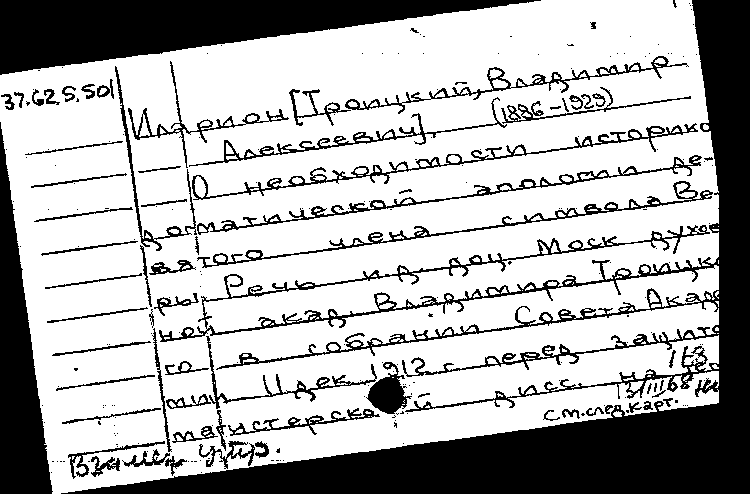 37.62.5.501
Иларион [Троицкий, Владимир
Алексеевич]. (1886-1929)
О необходимости историко
догматической апологии де-
вятого члена символа Ве-
ры. Речь и.д. доц. Моск духов
ной акад. Владимира Троицко
го в собрании Совета Акаде
мии 11 дек 1912 г перед защито
магистерской дисс. на
13/III 68
см.след.карт.
Взамен утр.